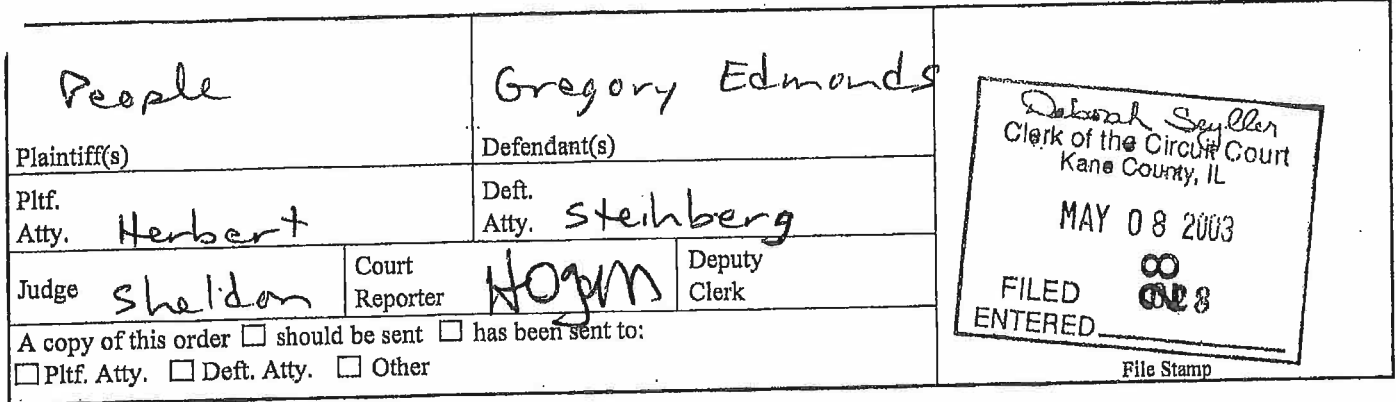 People
Plaintiff(s)
Gregory Edmonds
Defendant(s)
Pltf.
Atty. Herbert
Deft.
Atty. Steinberg
Judge Sheldon
Court
Reporter Hogan
Deputy
Clerk
A copy of this order ☐ should be sent ☐ has been sent to:
☐ Pltf. Atty. ☐ Deft. Atty. ☐ Other
Deborah Seyller
Clerk of the Circuit Court
Kane County, IL
MAY 08 2003
FILED
ENTERED
File Stamp